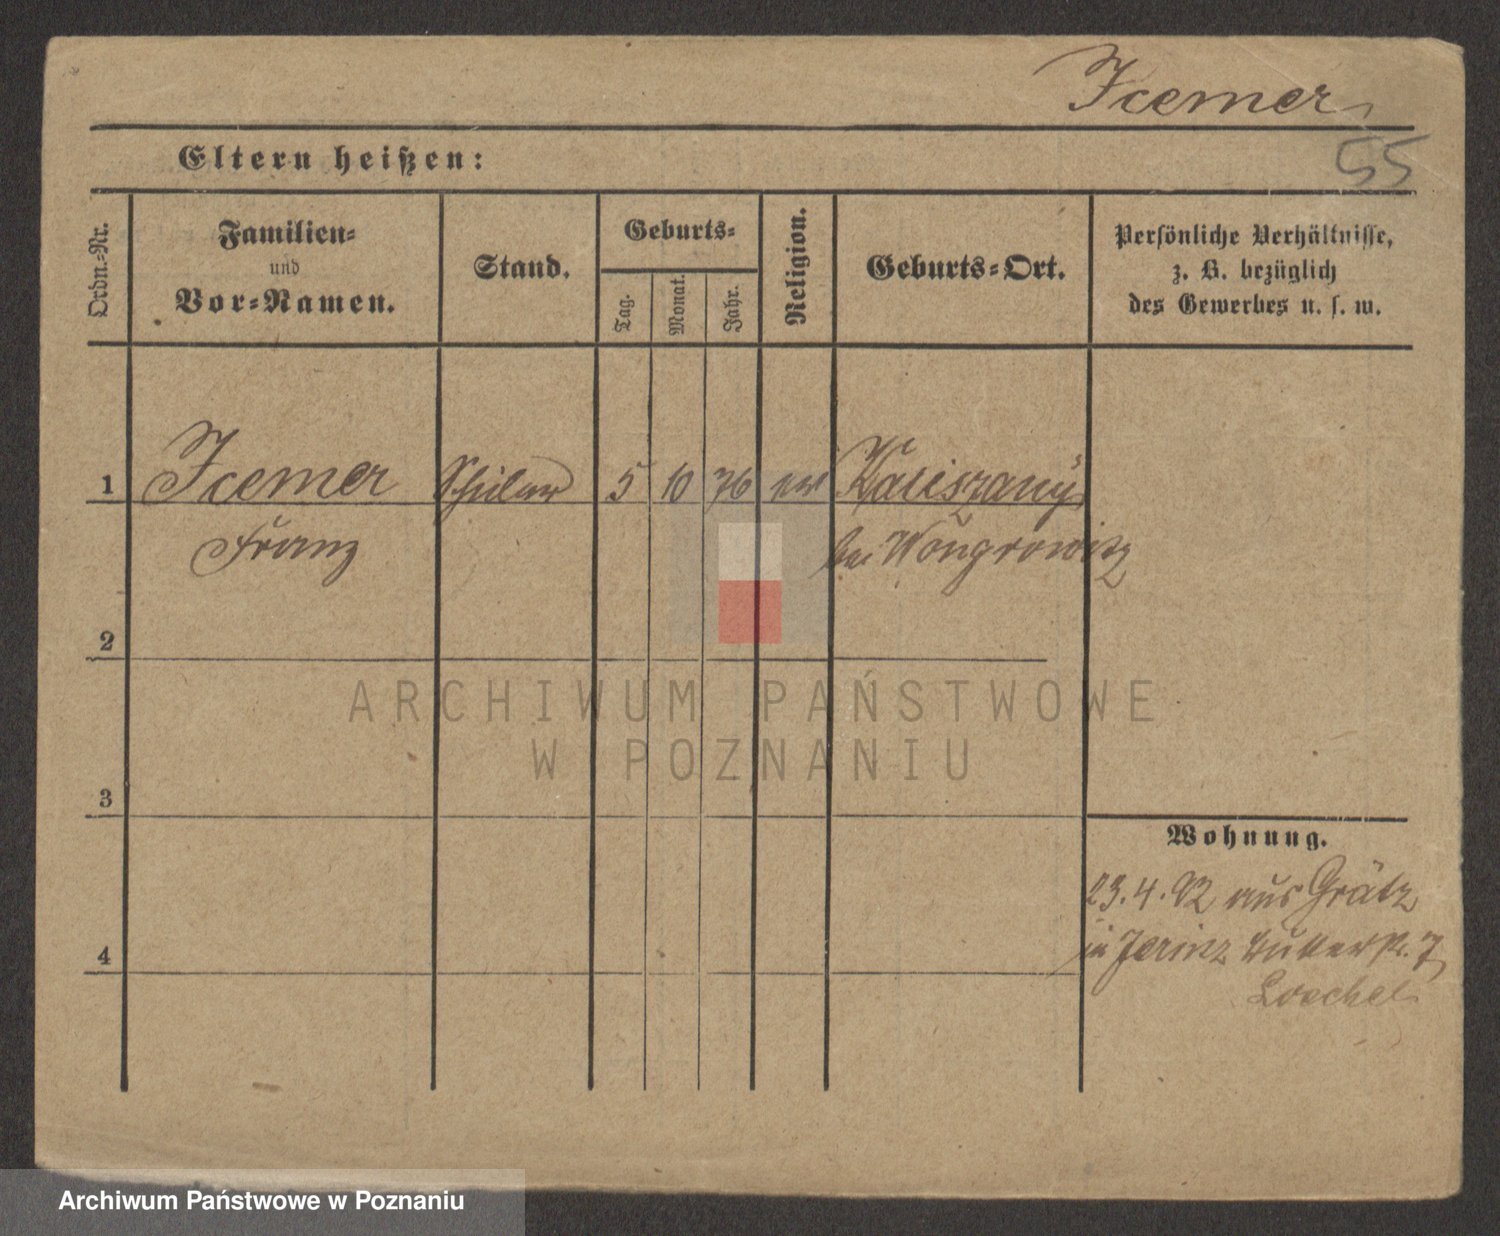 Icemer
55
Eltern heißen:
Ordn.-Nr.
Familien-
und
Vor-Namen.
Stand.
Geburts-
Tag.
Monat.
Jahr.
Religion.
Geburts-Ort.
Persönliche Verhältnisse,
z. B. bezüglich
des Gewerbes u. s. w.
1
Icemer
Schüler
5
10
76
Kaliszany
Franz
bei Wongrowitz
2
ARCHIWUM PAŃSTWOWE
W POZNANIU
3
Wohnung.
23.4.92 aus Grätz
in 7
4
Loechel
Archiwum Państwowe w Poznaniu